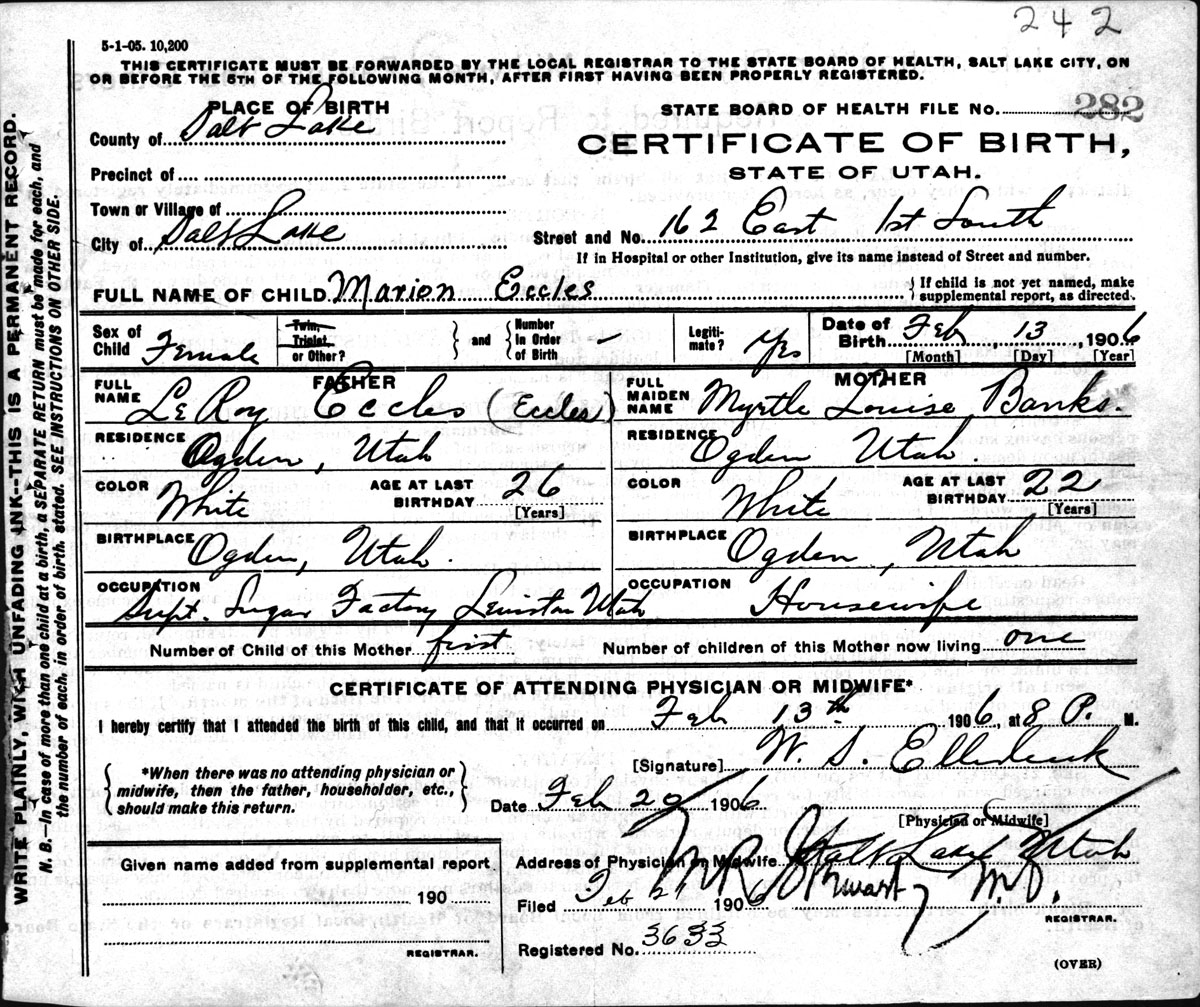 242
5-1-05. 10,200
THIS CERTIFICATE MUST BE FORWARDED BY THE LOCAL REGISTRAR TO THE STATE BOARD OF HEALTH, SALT LAKE CITY, ON
OR BEFORE THE 5TH OF THE FOLLOWING MONTH, AFTER FIRST HAVING BEEN PROPERLY REGISTERED.
WRITE PLAINLY, WITH UNFADING INK--THIS IS A PERMANENT RECORD.
N. B.--In case of more than one child at a birth, a SEPARATE RETURN must be made for each, and
the number of each, in order of birth, stated. SEE INSTRUCTIONS ON OTHER SIDE.
PLACE OF BIRTH
County of Salt Lake
Precinct of
Town or Village of
City of Salt Lake
STATE BOARD OF HEALTH FILE No. 282
CERTIFICATE OF BIRTH,
STATE OF UTAH.
Street and No. 162 East 1st South
If in Hospital or other Institution, give its name instead of Street and number.
FULL NAME OF CHILD Marion Eccles
If child is not yet named, make
supplemental report, as directed.
Sex of Child Female
Twin, Triplet, or Other?
and
Number in Order of Birth -
Legitimate? Yes
Date of Birth Feb 13, 1906
[Month] [Day] [Year]
FATHER
FULL NAME LeRoy Eccles (Eccles)
RESIDENCE Ogden, Utah
COLOR White
AGE AT LAST BIRTHDAY 26
[Years]
BIRTHPLACE Ogden, Utah.
OCCUPATION
Supt. Sugar Factory Lewiston Utah
MOTHER
FULL MAIDEN NAME Myrtle Louise Banks.
RESIDENCE Ogden Utah.
COLOR White
AGE AT LAST BIRTHDAY 22
[Years]
BIRTHPLACE Ogden, Utah
OCCUPATION Housewife
Number of Child of this Mother first
Number of children of this Mother now living one
CERTIFICATE OF ATTENDING PHYSICIAN OR MIDWIFE*
I hereby certify that I attended the birth of this child, and that it occurred on Feb 13th 1906, at 8 P. M.
*When there was no attending physician or
midwife, then the father, householder, etc.,
should make this return.
[Signature] W. S. Ellerbeck
Date Feb 20 1906
[Physician or Midwife]
Address of Physician or Midwife Salt Lake Utah
Filed Feb 21 1906 Stewart M.D.
REGISTRAR.
Registered No. 3633
Given name added from supplemental report
190
REGISTRAR.
(OVER)